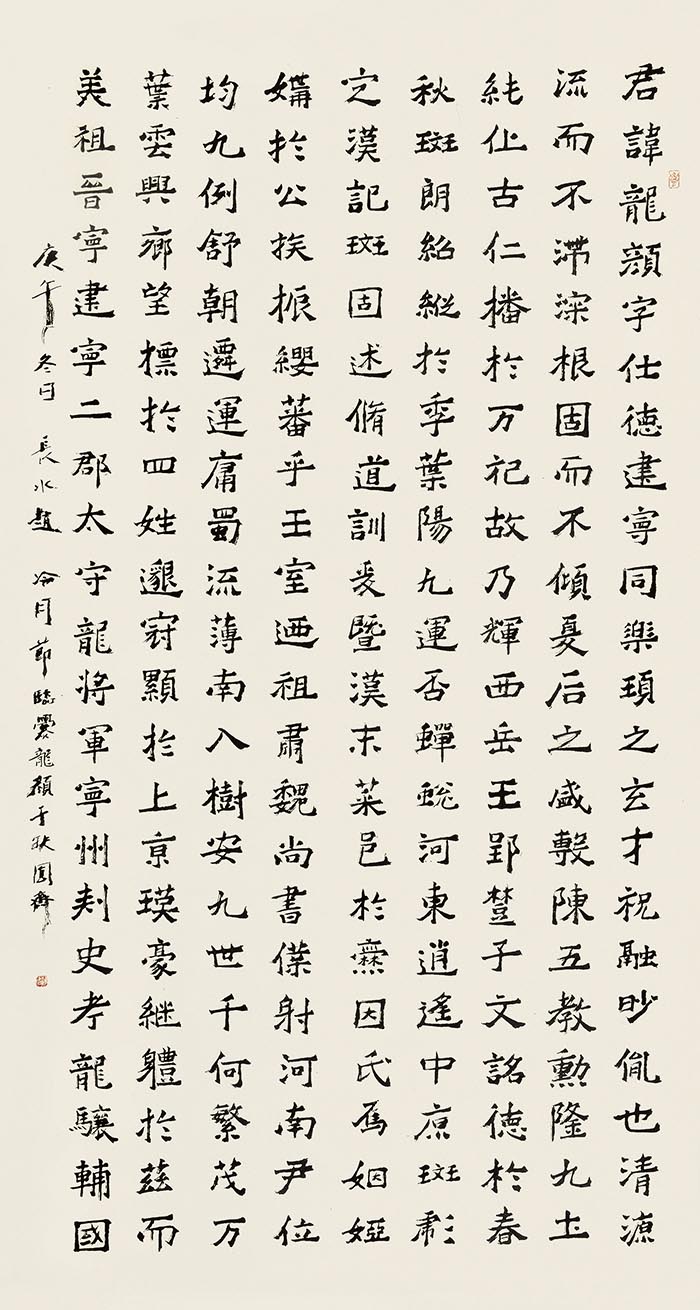 君諱龍顏字仕德建寧同樂頊之玄才祝融眇胤也清源
流而不滯深根固而不傾夏后之盛敷陳五教勳隆九土
純化古仁播於万祀故乃輝西岳王郢楚子文銘德於春
秋斑朗紹縱於季葉陽九運否蟬蛻河東逍遙中原斑彪
定漢記斑固述脩道訓爰暨漢末菜邑於爨因氏為姻婭
媾於公族振纓蕃乎王室迺祖肅魏尚書僕射河南尹位
均九例舒朝遷運庸蜀流薄南入樹安九世千何繁茂万
葉雲興鄉望標於四姓邈冠顯於上京瑛豪継軆於茲而
美祖晉寧建寧二郡太守龍將軍寧州刺史考龍驤輔國
庚午冬日 長水趙冷月節臨爨龍顏于缺圓齋